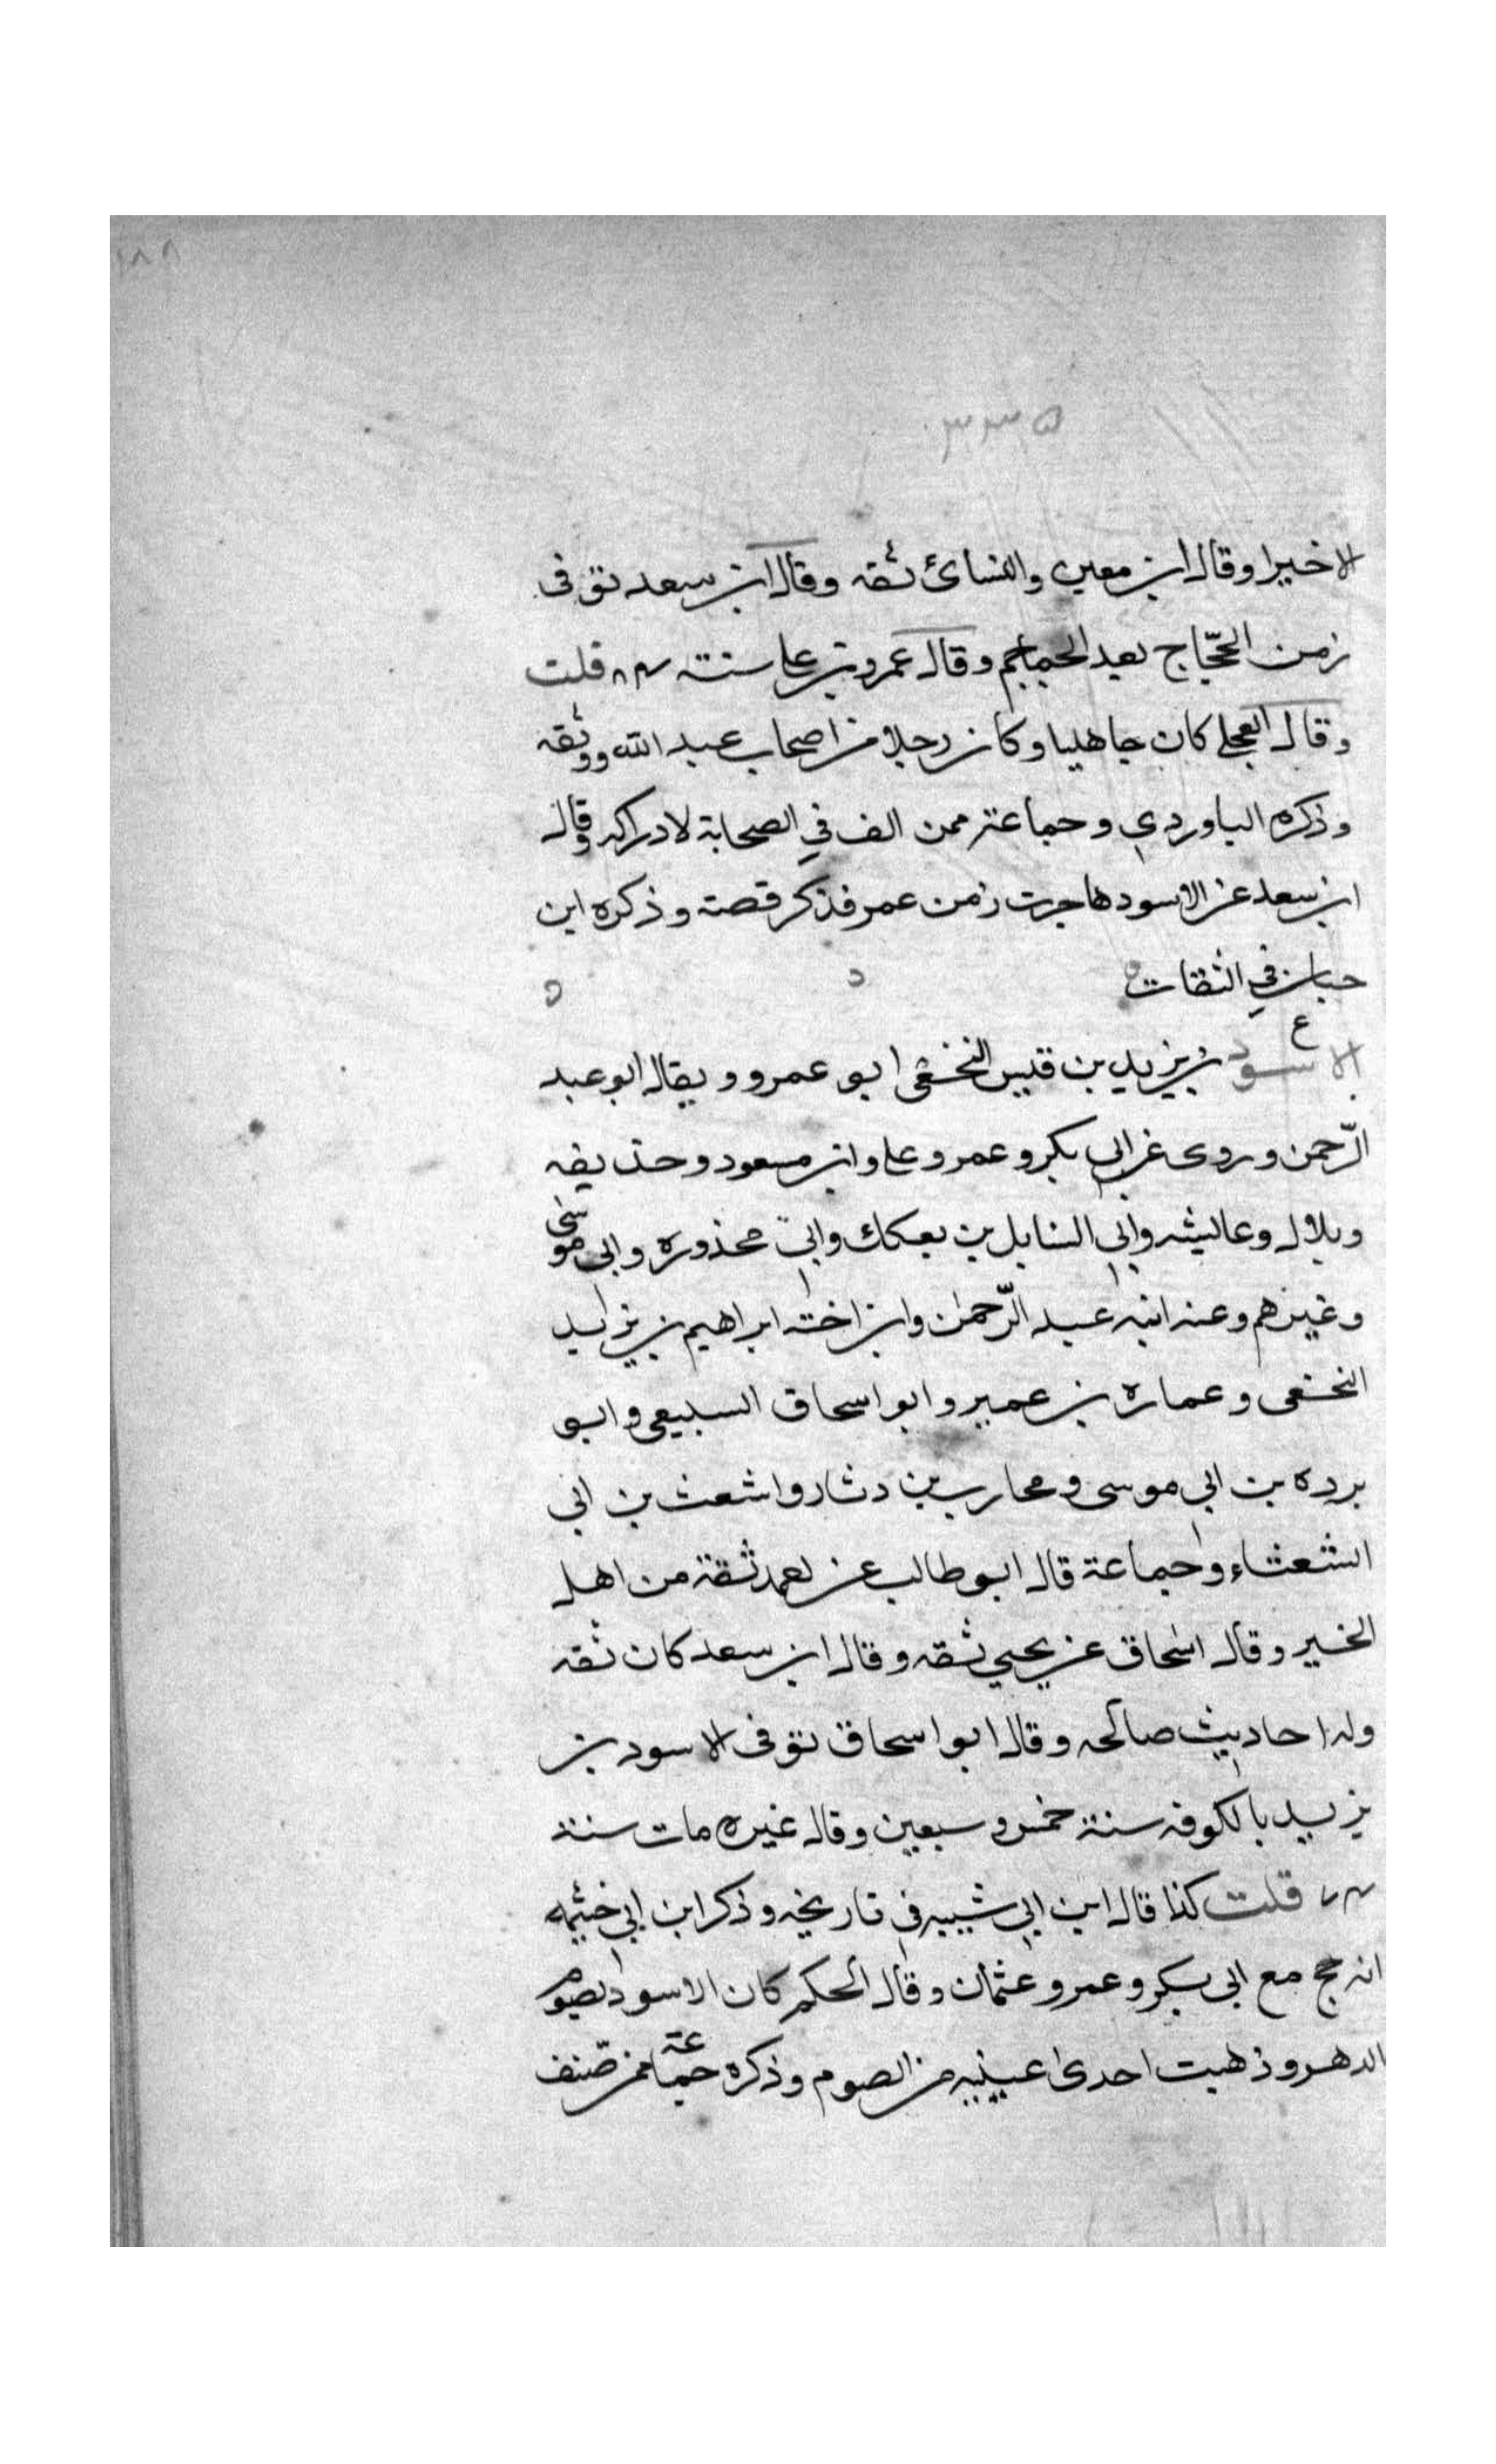 ١٨٨
٣٣٥
الا خيرا وقال ابن معين والنسائ ثقه وقال ابن سعد توفى
زمن الحجّاج بعد الجماجم وقال عمرو بن على سنة ٨٤ قلت
وقال العجلى كان جاهليا وكان رجلا من اصحاب عبد الله ووثقه
وذكره الباوردي وجماعة ممن الف في الصحابة لادراكه وقال
ابن سعد عن الاسود هاجرت زمن عمر فذكر قصة وذكره ابن
حبان في الثقات
ع
الاسود بن يزيد بن قيس النخعى ابو عمرو ويقال ابو عبد
الرّحمن وروى عن ابي بكر وعمر وعلى وابن مسعود وحذيفه
وبلال وعائيشه وابي السنابل بن بعكك وابي محذوره وابى موسى
وغيرهم وعنه ابنه عبد الرّحمٰن وابن اخته ابراهيم بن يزيد
النخعى وعماره بن عمير وابو اسحاق السبيعى وابو
برده بن ابي موسى ومحارب بن دثار واشعث بن ابى
الشعثاء وجماعة قال ابو طالب عن احمد ثقة من اهل
الخير وقال اسحاق عن يحيي ثقه وقال ابن سعد كان ثقه
وله احاديث صالحه وقال ابو اسحاق توفى الاسود بن
يزيد بالكوفه سنة خمس وسبعين وقال غيره مات سنة
٧٤ قلت كذا قال ابن ابي شيبه في تاريخه وذكر ابن ابي خيثمه
انه حج مع ابى بكر وعمر وعثمان وقال الحكم كان الاسود يصوم
الدهر وذهبت احدى عينيه من الصوم وذكره جماعة ممن صنف